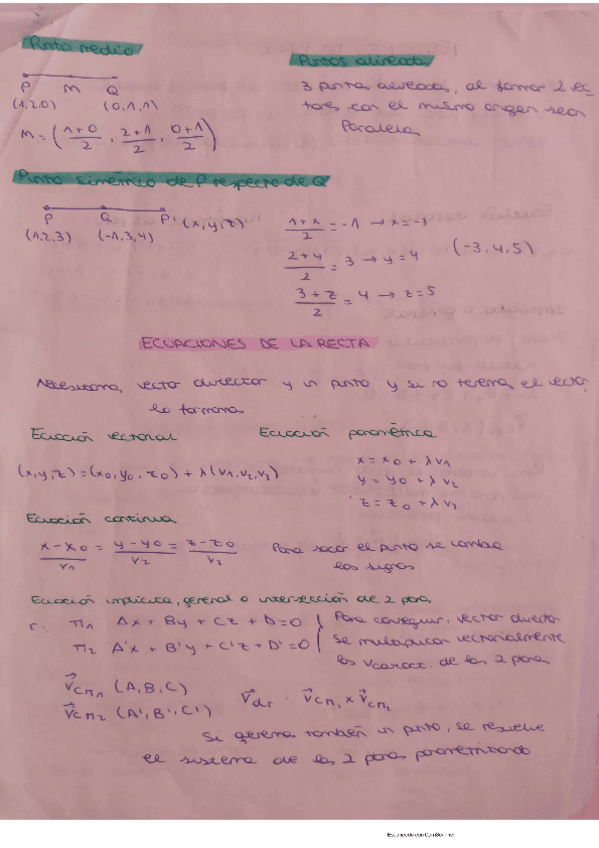 Punto medio
P M Q
(1,2,0) (0,1,1)
M = (1+0/2, 2+1/2, 0+1/2)
Puntos alineados
3 puntos alineados, al formar 2 vec-
tores con el mismo origen sean
Paralelos
Punto simétrico de P respecto de Q
P Q P' (x,y,z)
(1,2,3) (-1,3,4)
1+x/2 = -1 → x=-3
2+y/2 = 3 → y=4
3+z/2 = 4 → z=5
(-3,4,5)
ECUACIONES DE LA RECTA
Necesitamos, vector director y un punto y si no tenemos el vector,
lo formamos
Ecuación vectorial
(x,y,z)=(x0,y0,z0)+λ(v1,v2,v2)
Ecuación paramétrica
x = x0 + λv1
y = y0 + λv2
z = z0 + λv2
Ecuación continua
x-x0/v1 = y-y0/v2 = z-z0/v2
Para sacar el punto se cambia
los signos
Ecuación implícita, general o intersección de 2 planos
r: π1 Ax + By + Cz + D=0
π2 A'x + B'y + C'z + D'=0
Para conseguir vector director
se multiplican vectorialmente
los vcaract. de los 2 planos
v⃗cπ1 (A,B,C)
v⃗cπ2 (A',B',C')
v⃗dr · v⃗cπ1 x v⃗cπ2
Si queremos también un punto, se resuelve
el sistema de los 2 planos parametrizando
Escaneado con CamScanner